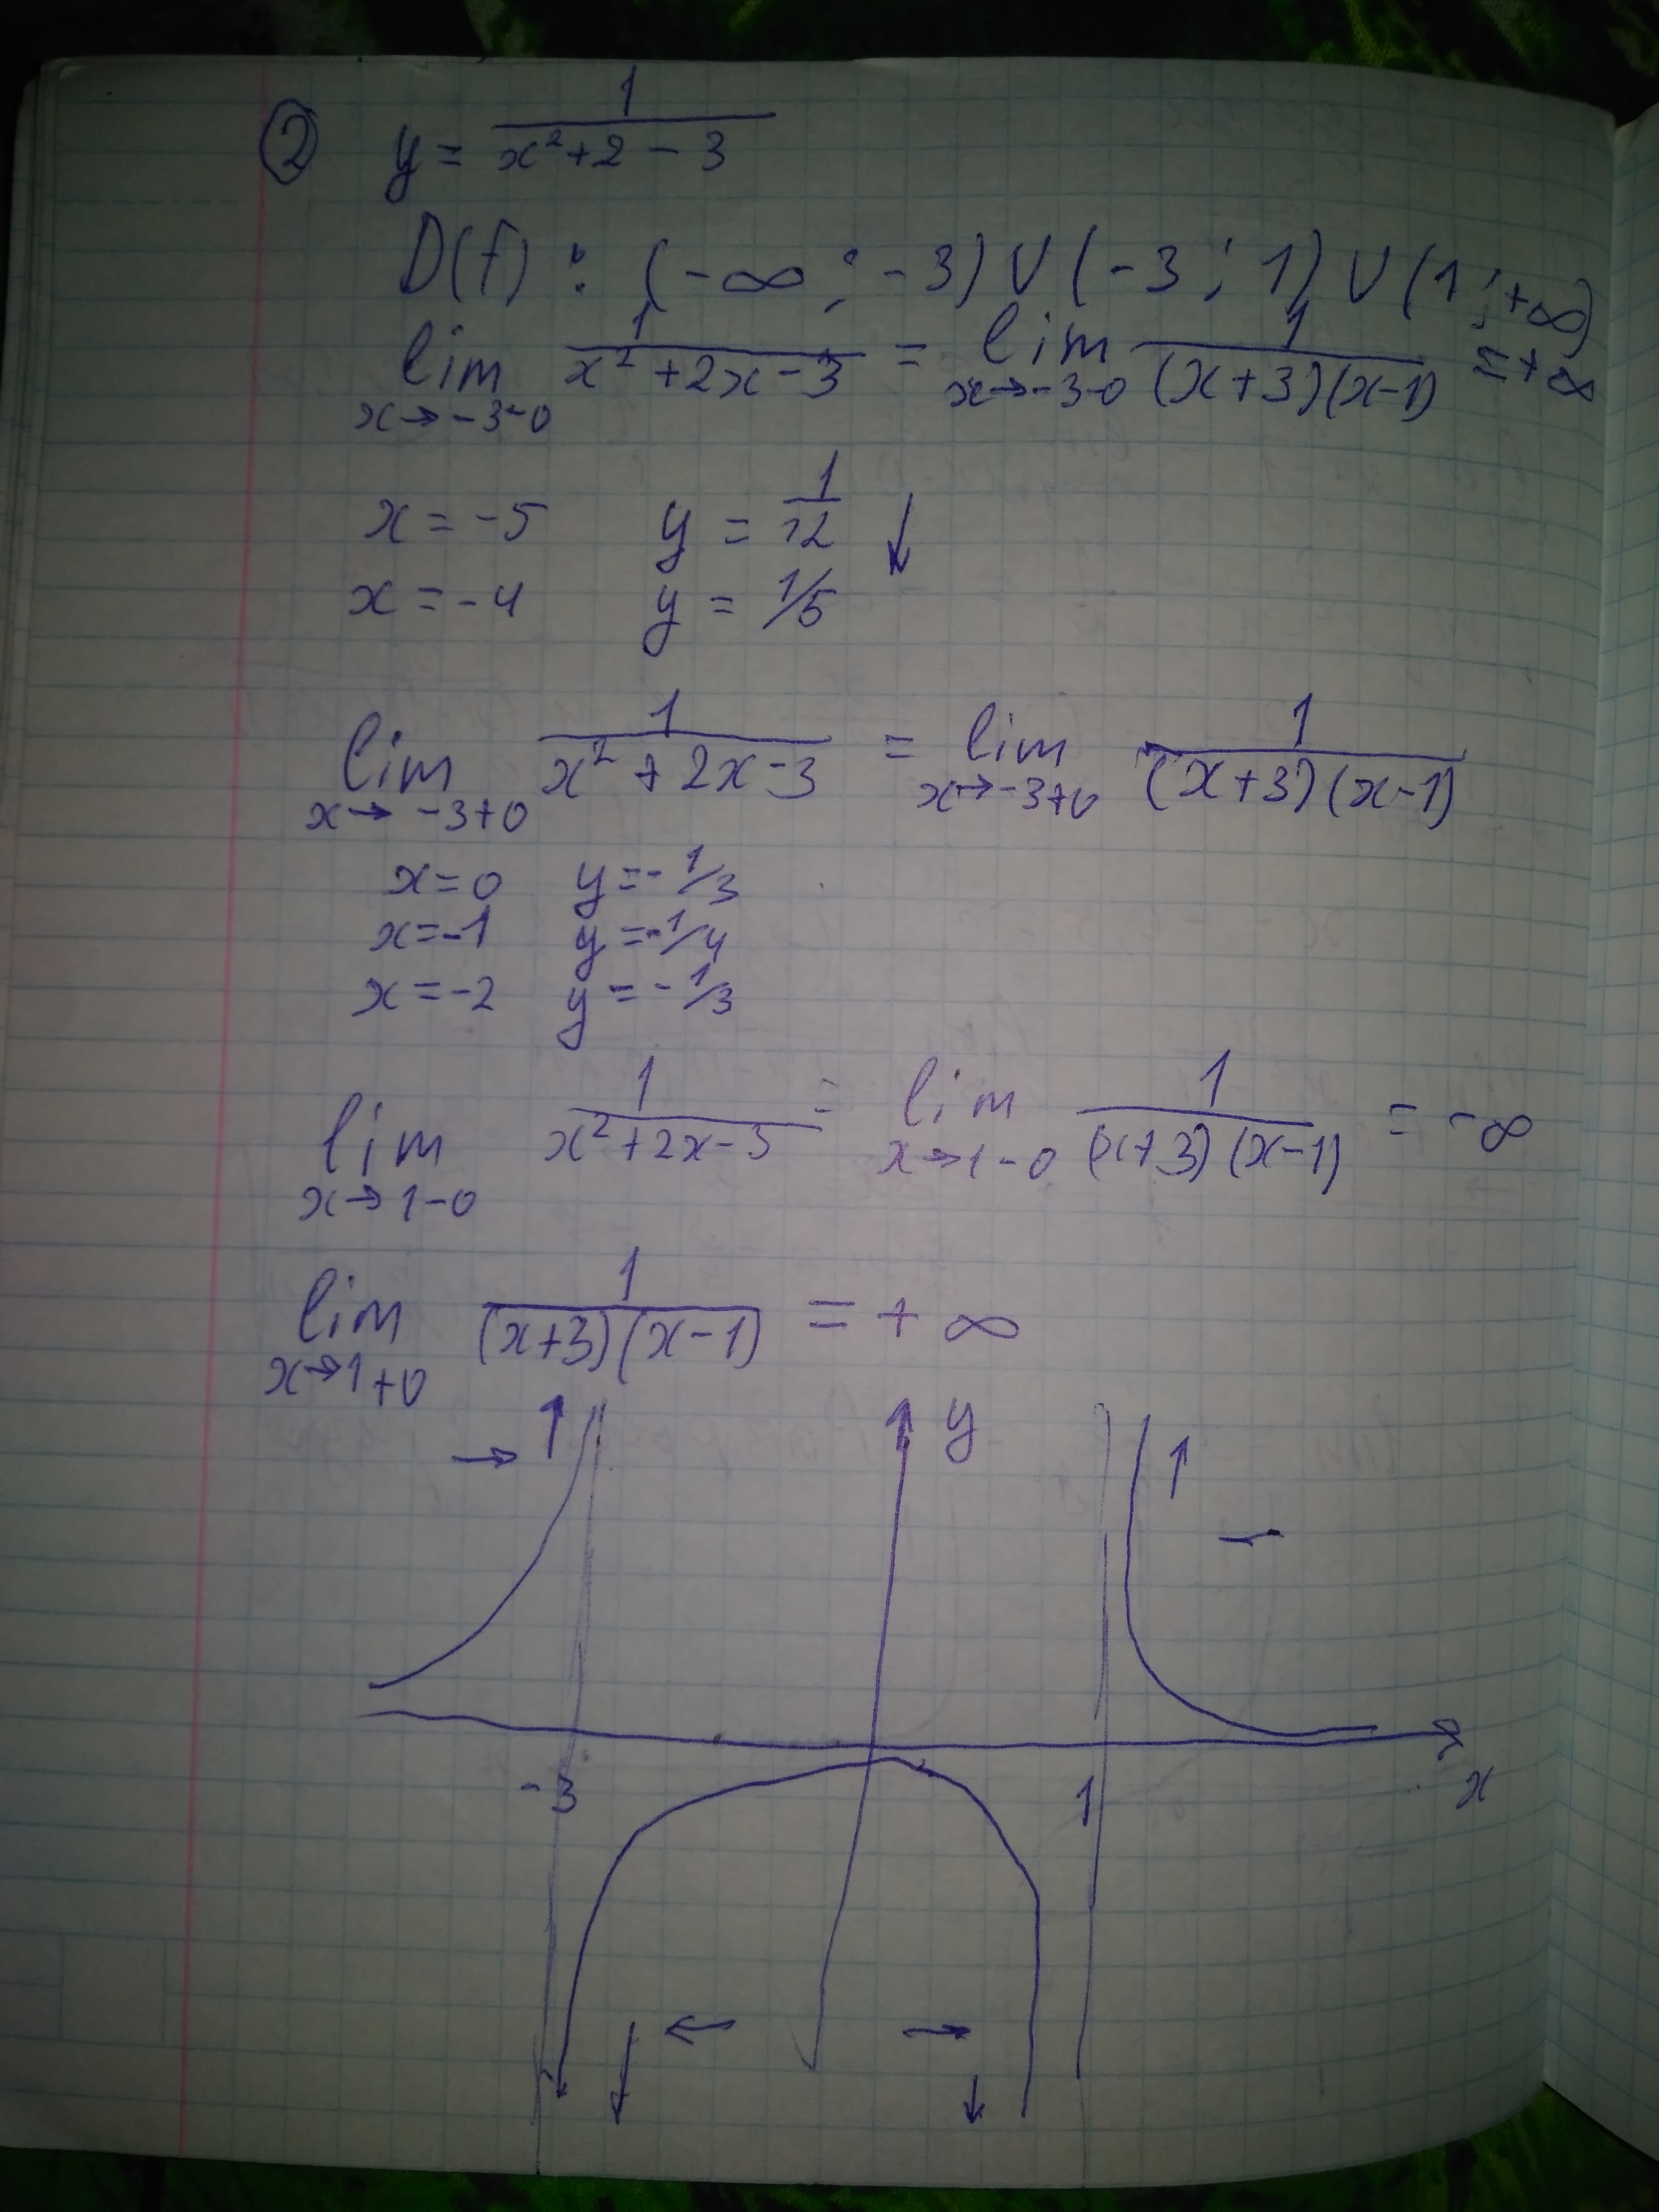 ② y = 1/(x²+2-3)
D(f): (-∞; -3) ∪ (-3; 1) ∪ (1; +∞)
lim x→-3-0 1/(x²+2x-3) = lim x→-3-0 1/((x+3)(x-1)) = +∞
x = -5 y = 1/12 ↓
x = -4 y = 1/5
lim x→-3+0 1/(x²+2x-3) = lim x→-3+0 1/((x+3)(x-1))
x=0 y=-1/3
x=-1 y=-1/4
x=-2 y=-1/3
lim x→1-0 1/(x²+2x-3) = lim x→1-0 1/((x+3)(x-1)) = -∞
lim x→1+0 1/((x+3)(x-1)) = +∞
y
-3 1 x